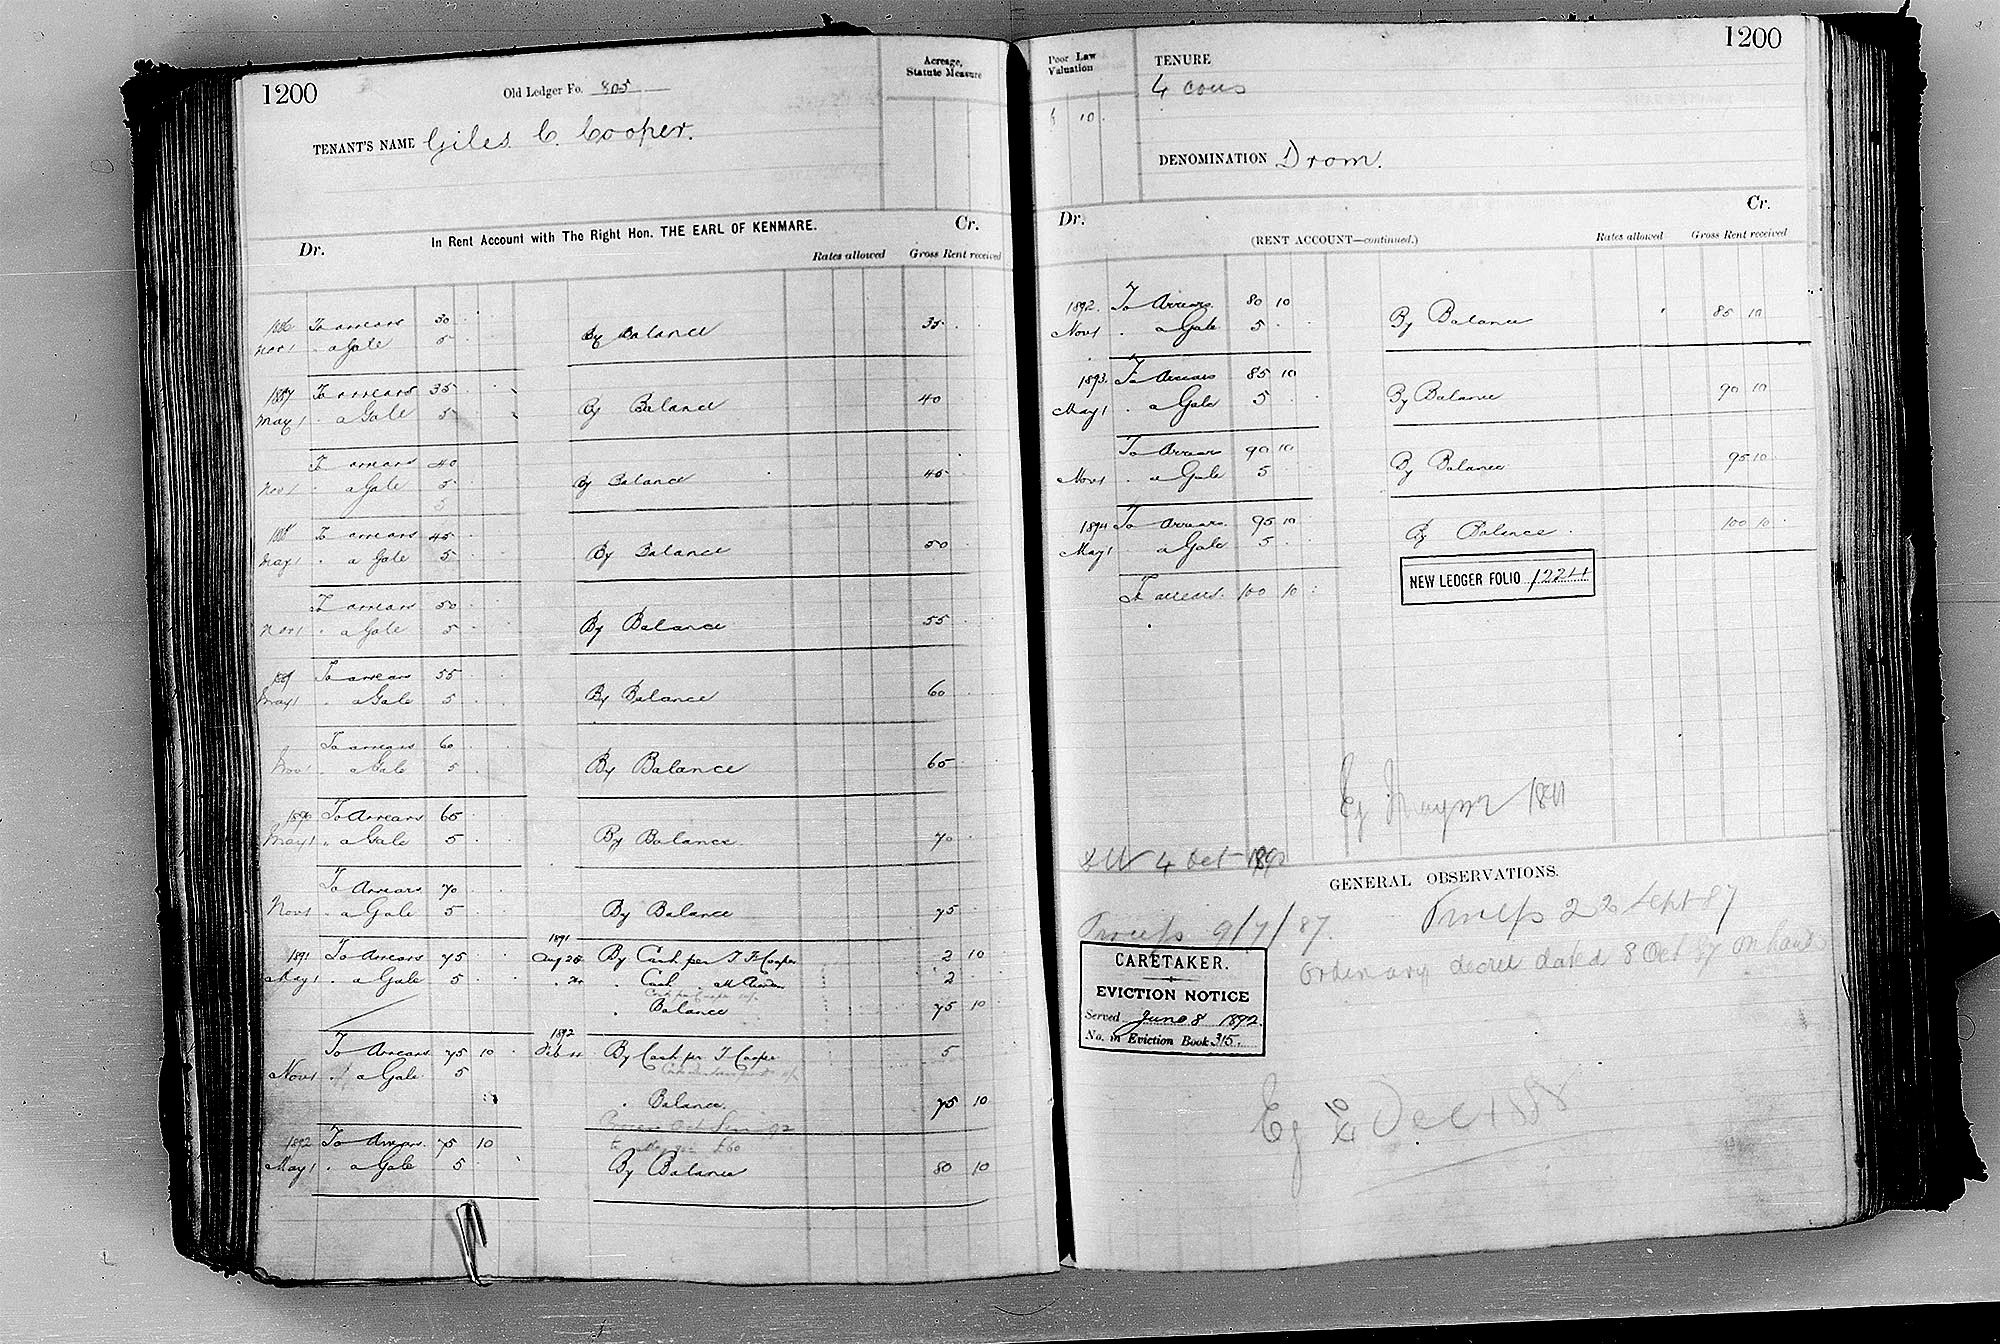 1200
Old Ledger Fo. 805
Acreage, Statute Measure
TENANT'S NAME Giles C. Cooper.
In Rent Account with The Right Hon. THE EARL OF KENMARE.
Dr. Cr.
Rates allowed Gross Rent received
1886 To arrears 30
Nov 1 . a Gale 5 By Balance 35
1887 To arrears 35
May 1 . a Gale 5 By Balance 40
To arrears 40
Nov 1 . a Gale 5 By Balance 45
5
1888 To arrears 45
May 1 . a Gale 5 By Balance 50
To arrears 50
Nov 1 . a Gale 5 By Balance 55
1889 To arrears 55
May 1 . a Gale 5 By Balance 60
To arrears 60
Nov 1 . a Gale 5 By Balance 65
1890 To Arrears 65
May 1 . a Gale 5 By Balance 70
To Arrears 70
Nov 1 . a Gale 5 By Balance 75
1891
1891 To Arrears 75 Aug 25 By Cash per T Cooper 2 10
May 1 . a Gale 5 . Cash 2
. Balance 75 10
1892
To Arrears 75 10 Feb 11 By Cash per T Cooper 5
Nov 1 . a Gale 5
. Balance 75 10
1892 To Arrears 75 10
May 1 . a Gale 5 By Balance 80 10
1200
Poor Law Valuation
TENURE
4 cous
10
DENOMINATION Drom.
Dr. Cr.
(RENT ACCOUNT—continued.)
Rates allowed Gross Rent received
1892. To Arrears 80 10
Nov 1 . a Gale 5 By Balance 85 10
1893. To Arrears 85 10
May 1 . a Gale 5 By Balance 90 10
To Arrears 90 10
Nov 1 . a Gale 5 By Balance 95 10
1894 To Arrears 95 10
May 1 . a Gale 5 By Balance 100 10
To arrears 100 10
NEW LEDGER FOLIO 1224
4 Oct 1890
GENERAL OBSERVATIONS.
9/7/87. 22 Sept 87
Ordinary decree dated 8 Oct 87 on hands
CARETAKER.
EVICTION NOTICE
Served June 8 1892.
No. in Eviction Book 315.
Dec 1888